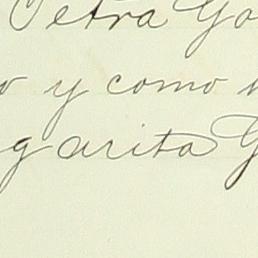 Petra Go
o y como
garita G